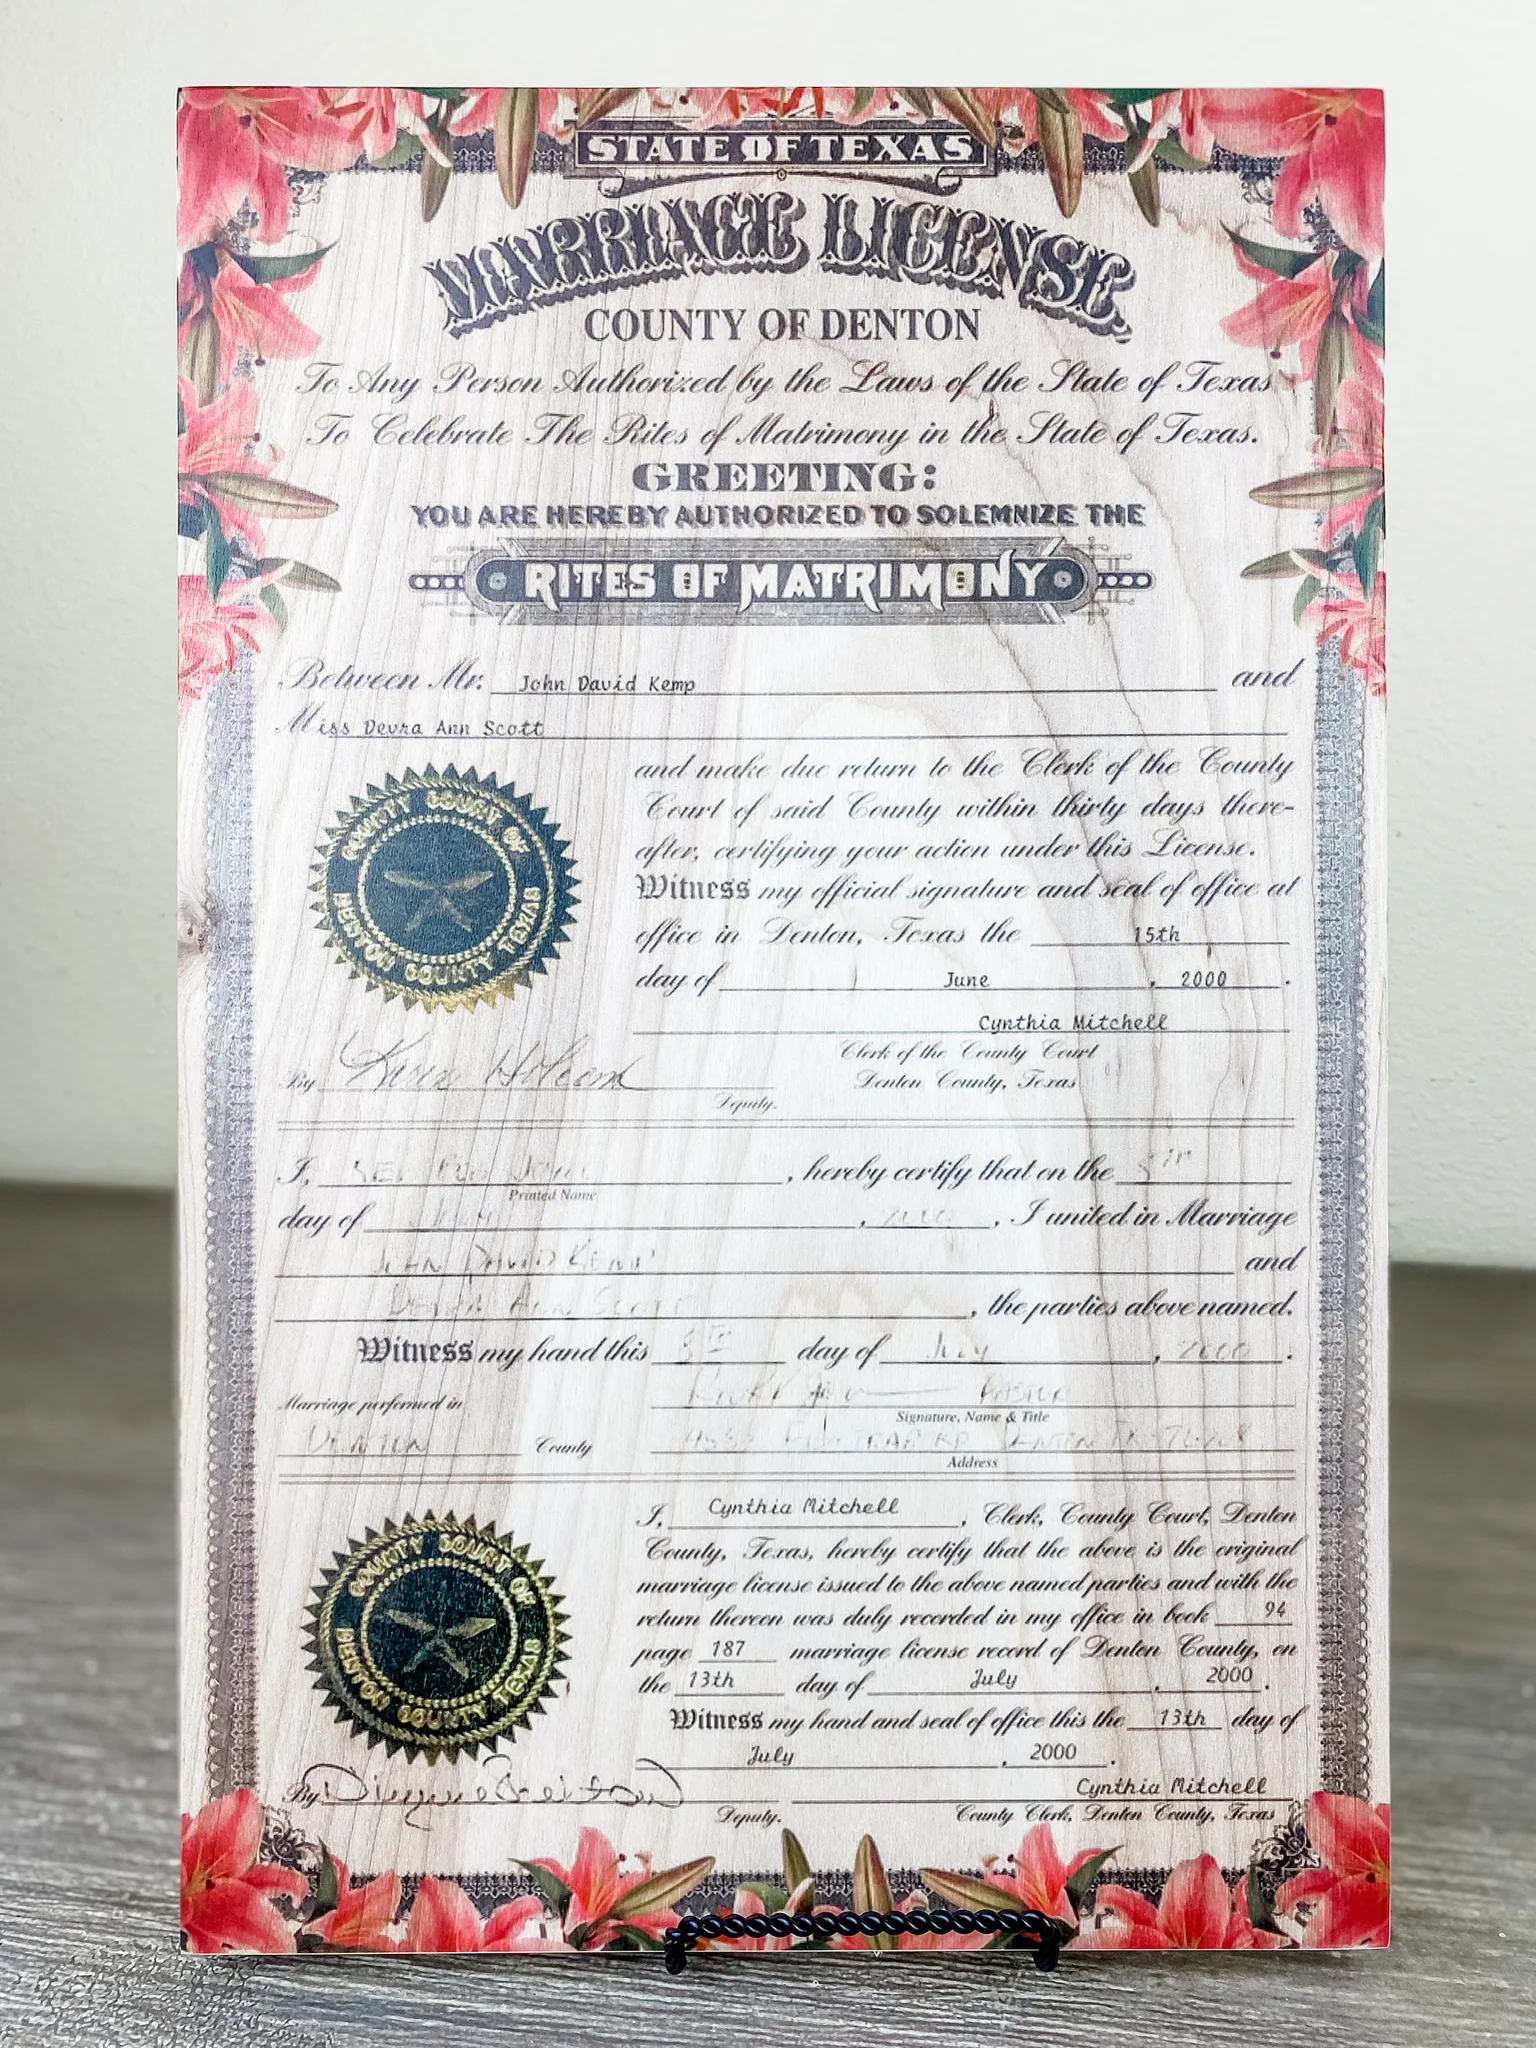 STATE OF TEXAS
MARRIAGE LICENSE
COUNTY OF DENTON
To Any Person Authorized by the Laws of the State of Texas
To Celebrate The Rites of Matrimony in the State of Texas.
GREETING:
YOU ARE HEREBY AUTHORIZED TO SOLEMNIZE THE
RITES OF MATRIMONY
Between Mr. John David Kemp and
Miss Devra Ann Scott
and make due return to the Clerk of the County
Court of said County within thirty days there-
after, certifying your action under this License.
Witness my official signature and seal of office at
office in Denton, Texas the 15th
day of June, 2000.
COUNTY COURT OF
DENTON COUNTY TEXAS
Cynthia Mitchell
Clerk of the County Court
Denton County, Texas
By Karen Holcomb
Deputy.
I, , hereby certify that on the
Printed Name
day of , 2000, I united in Marriage
JOHN DAVID KEMP and
DEVRA ANN SCOTT, the parties above named.
Witness my hand this 8TH day of July, 2000.
Marriage performed in
PASTOR
Signature, Name & Title
DENTON County
Address
I, Cynthia Mitchell, Clerk, County Court, Denton
County, Texas, hereby certify that the above is the original
marriage license issued to the above named parties and with the
return thereon was duly recorded in my office in book 94
page 187 marriage license record of Denton County, on
the 13th day of July, 2000.
Witness my hand and seal of office this the 13th day of
July, 2000.
COUNTY COURT OF
DENTON COUNTY TEXAS
By
Deputy.
Cynthia Mitchell
County Clerk, Denton County, Texas